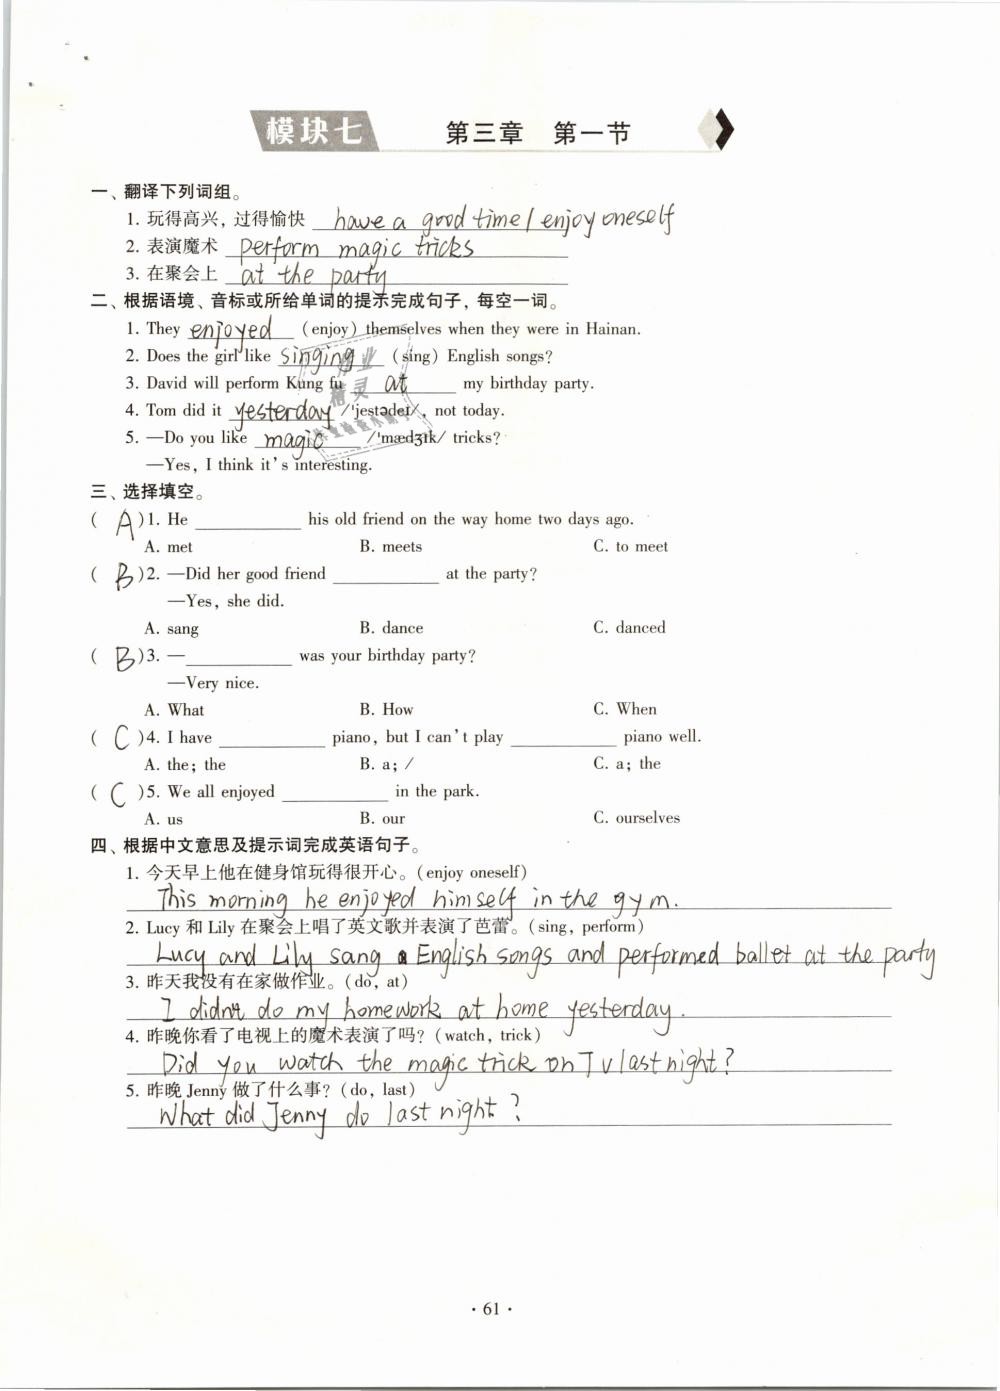 模块七 第三章 第一节
一、翻译下列词组。
1. 玩得高兴，过得愉快 have a good time / enjoy oneself
2. 表演魔术 perform magic tricks
3. 在聚会上 at the party
二、根据语境、音标或所给单词的提示完成句子，每空一词。
1. They enjoyed (enjoy) themselves when they were in Hainan.
2. Does the girl like singing (sing) English songs?
3. David will perform Kung fu at my birthday party.
4. Tom did it yesterday /'jestədeɪ/, not today.
5. —Do you like magic /'mædʒɪk/ tricks?
—Yes, I think it's interesting.
三、选择填空。
( A )1. He ________ his old friend on the way home two days ago.
A. met B. meets C. to meet
( B )2. —Did her good friend ________ at the party?
—Yes, she did.
A. sang B. dance C. danced
( B )3. —________ was your birthday party?
—Very nice.
A. What B. How C. When
( C )4. I have ________ piano, but I can't play ________ piano well.
A. the; the B. a; / C. a; the
( C )5. We all enjoyed ________ in the park.
A. us B. our C. ourselves
四、根据中文意思及提示词完成英语句子。
1. 今天早上他在健身馆玩得很开心。(enjoy oneself)
This morning he enjoyed himself in the gym.
2. Lucy 和 Lily 在聚会上唱了英文歌并表演了芭蕾。(sing, perform)
Lucy and Lily sang English songs and performed ballet at the party
3. 昨天我没有在家做作业。(do, at)
I didn't do my homework at home yesterday.
4. 昨晚你看了电视上的魔术表演了吗? (watch, trick)
Did you watch the magic trick on Tv last night?
5. 昨晚 Jenny 做了什么事? (do, last)
What did Jenny do last night?
· 61 ·